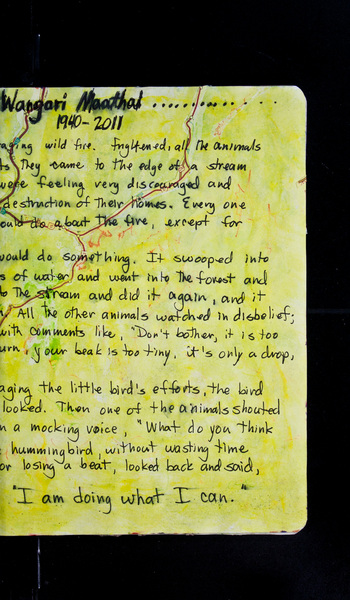 Wangari Maathai ............
1940-2011
aging wild fire. Frightened, all the animals
ts They came to the edge of a stream
were feeling very discouraged and
destruction of their homes. Every one
ould do about the fire, except for
would do something. It swooped into
s of water and went into the forest and
to the stream and did it again, and it
. All the other animals watched in disbelief;
with comments like, "Don't bother, it is too
urn, your beak is too tiny, it's only a drop,
aging the little bird's efforts, the bird
looked. Then one of the animals shouted
n a mocking voice, "What do you think
hummingbird, without wasting time
or losing a beat, looked back and said,
"I am doing what I can."